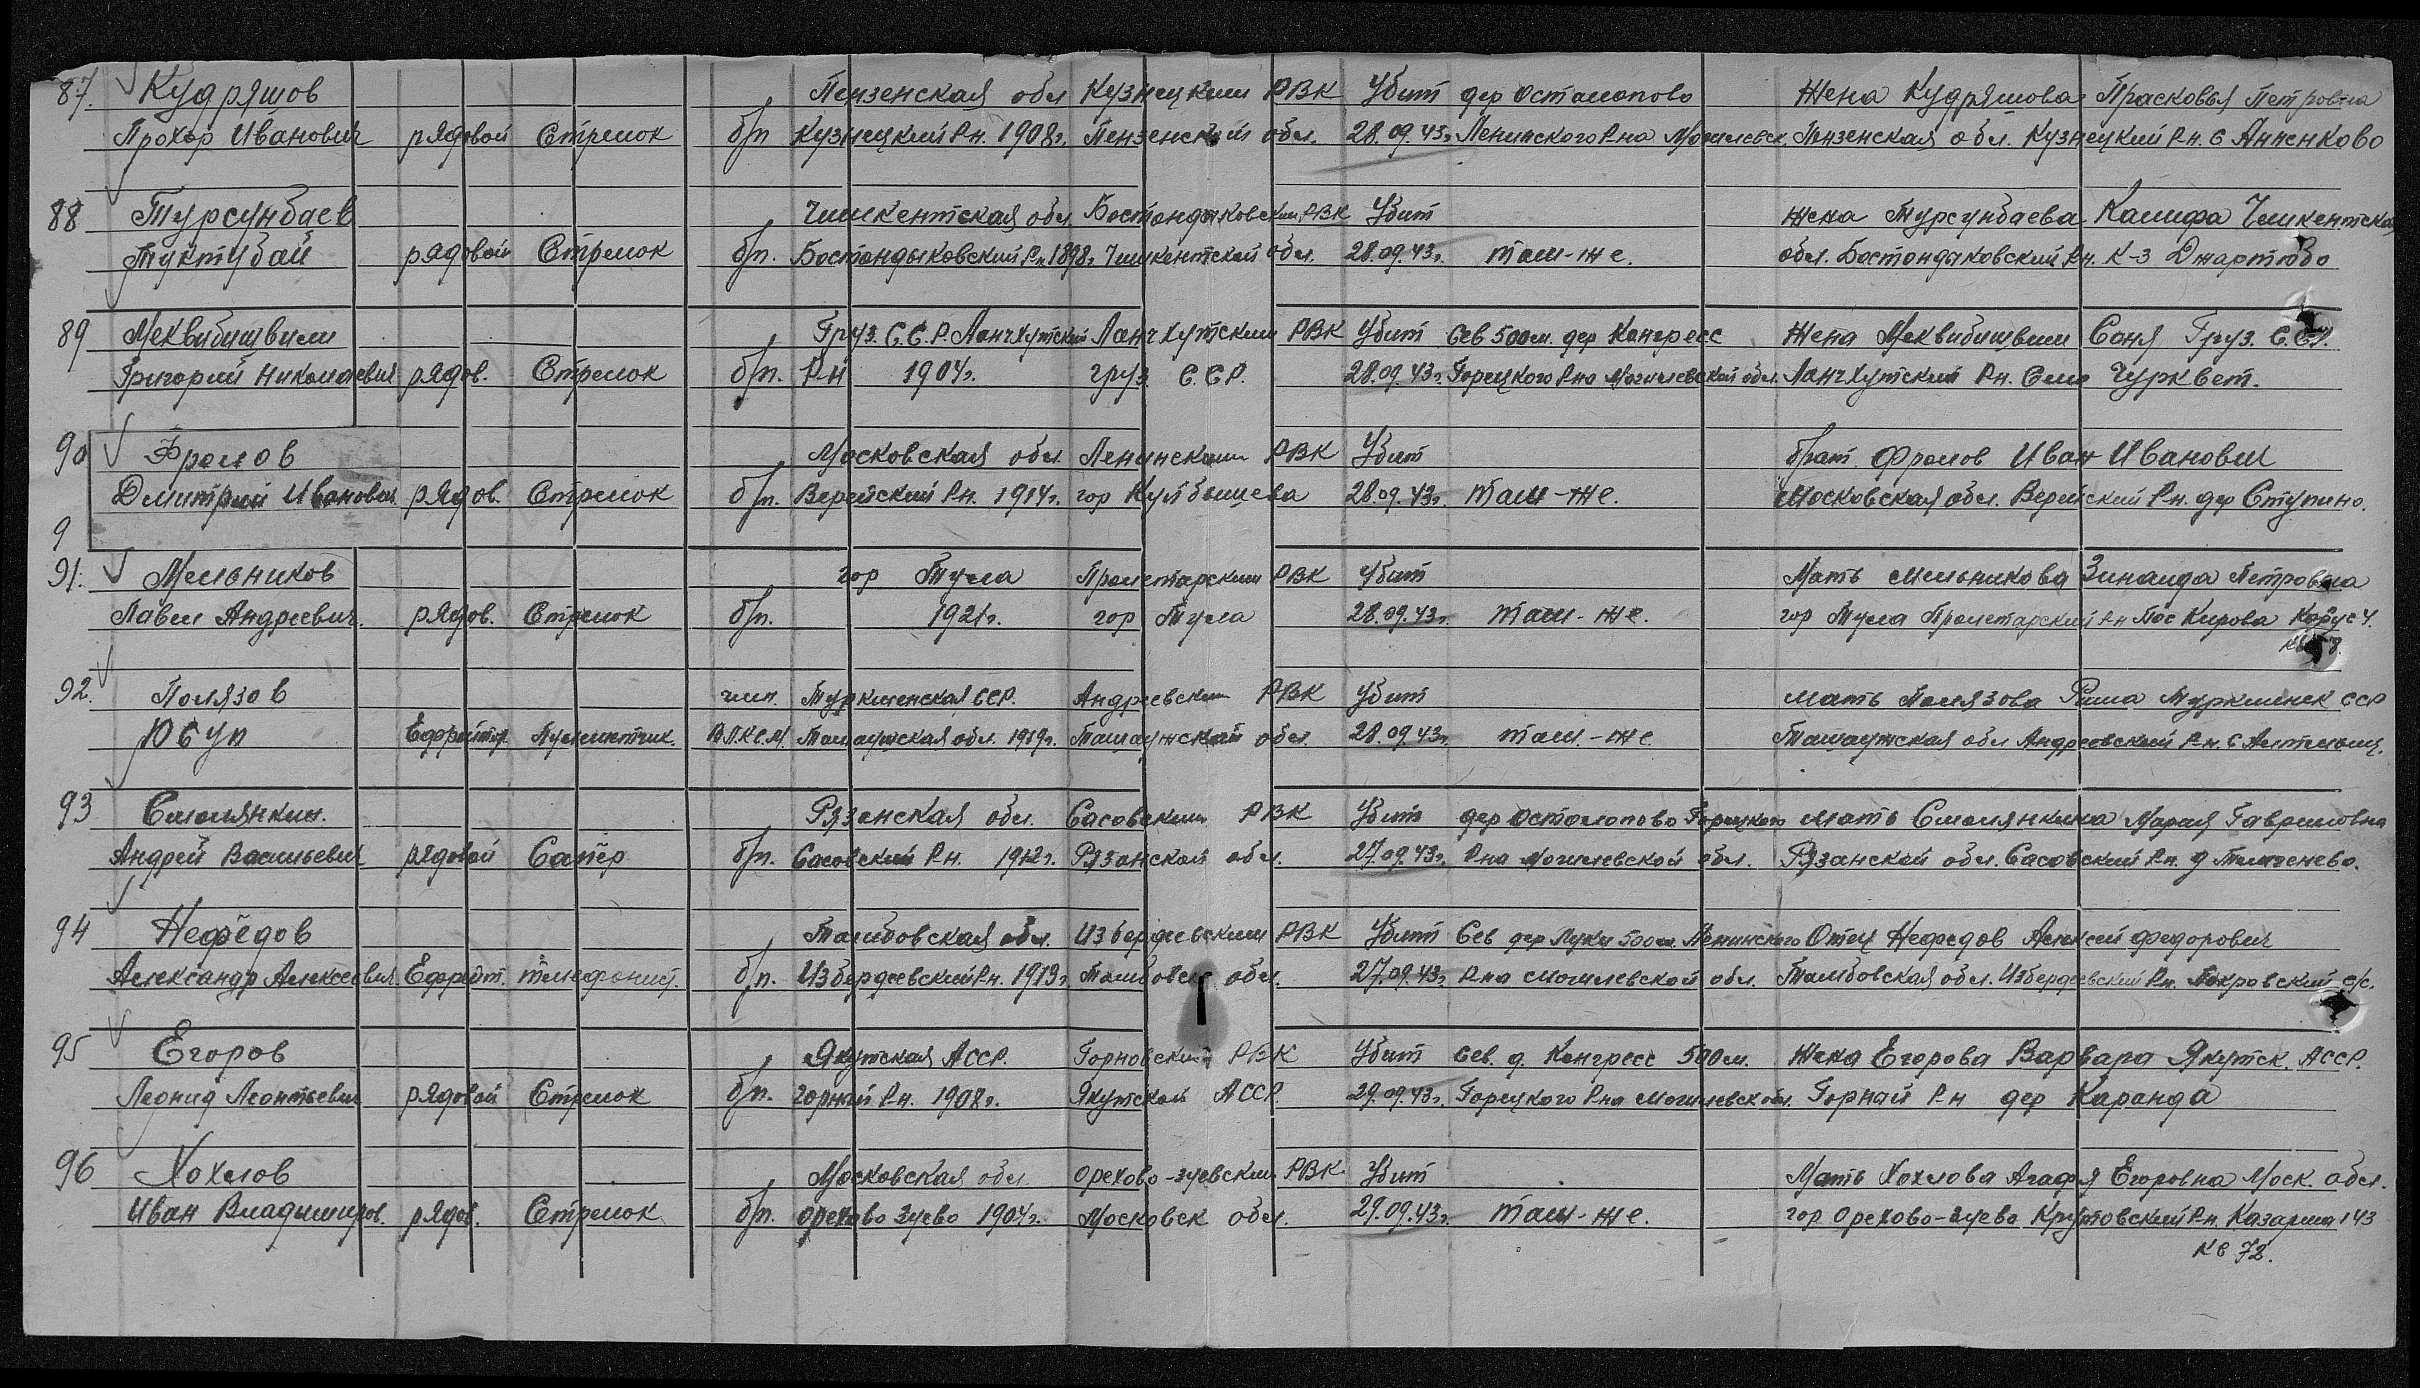 87. Кудряшов Пензенская обл Кузнецким РВК Убит дер Осталопово Жена Кудряшова Прасковья Петровна
Прохор Иванович рядовой Стрелок б/п Кузнецкий Р-н. 1908г. Пензенской обл. 28.09.43г. Ленинского Р-на Могилевск. Пензенская обл. Кузнецкий Р-н. с Анненково
88 Турсунбаев Чимкентская обл. Бостандыковским РВК Убит Жена Турсунбаева Калифа Чимкентская
Туктубай рядовой Стрелок б/п. Бостандыковский Р-н 1898г. Чимкентской обл. 28.09.43г. там-же. обл. Бостандыковский Р-н. к-з Джартюбо
89 Меквабишвили Груз. С.С.Р. Ланчхутский Ланчхутским РВК Убит Сев 500м. дер Конгресс Жена Меквабишвили Соня Груз. С.С.Р.
Григорий Николаевич рядов. Стрелок б/п. Р-н 1904г. груз. С.С.Р. 28.09.43г. Горецкого Р-на Могилевской обл. Ланчхутский Р-н. Село Чурквет.
90 Фролов Московская обл Ленинским РВК Убит брат Фролов Иван Иванович
Дмитрий Иванович. рядов. Стрелок б/п. Верейский Р-н. 1914г. гор Куйбышева 28.09.43г. там-же. Московская обл. Верейский Р-н. дер Ступино.
9
91. Мельников гор Тула Пролетарским РВК Убит Мать Мельникова Зинаида Петровна
Павел Андреевич. рядов. Стрелок б/п. 1921г. гор Тула 28.09.43г. там-же. гор Тула Пролетарский р-н Пос Кирова Корус 4.
кв 8.
92. Полязов чл. Туркменская ССР. Андреевским РВК Убит мать Полязова Туркменск ССР
Юсуп Ефрейтор. Пулеметчик. ВЛКСМ. Ташаузская обл. 1919г. Ташаузской обл. 28.09.43г. там.-же Ташаузская обл Андреевский Р-н. с
93 Смолянкин. Рязанская обл. Сасовским РВК Убит дер Осталопово Горецкого Мать Смолянкина Мария Гавриловна
Андрей Васильевич рядовой Сапёр б/п. Сасовский Р-н. 1912г. Рязанской обл. 27.09.43г. Р-на Могилевской обл. Рязанской обл. Сасовский Р-н. д Темгенево.
94 Нефёдов Тамбовская обл. Избердеевским РВК Убит Сев дер Луки 500м. Ленинского Отец Нефедов Алексей Федорович
Александр Алексеевич. Ефрейт. телефонист. б/п. Избердеевский Р-н. 1913г. Тамбовск обл. 27.09.43г. Р-на Могилевской обл. Тамбовская обл. Избердеевский Р-н. Покровский с/с.
95 Егоров Якутская АССР. Горновский РВК Убит Сев. д. Конгресс 500м. Жена Егорова Варвара Якутск. АССР.
Леонид Леонтьевич рядовой Стрелок б/п. Горный Р-н. 1908г. Якутской АССР 29.09.43г. Горецкого Р-на Могилевск обл. Горнай Р-н дер Каранда
96 Хохлов Московская обл Орехово-зуевским РВК Убит Мать Хохлова Агафя Егоровна Моск. обл.
Иван Владимиров. рядов. Стрелок б/п. Орехово Зуево 1904г. Московск обл. 29.09.43г. там-же. гор Орехово-Зуево Крутовский Р-н. Казарма 143
кв 72.